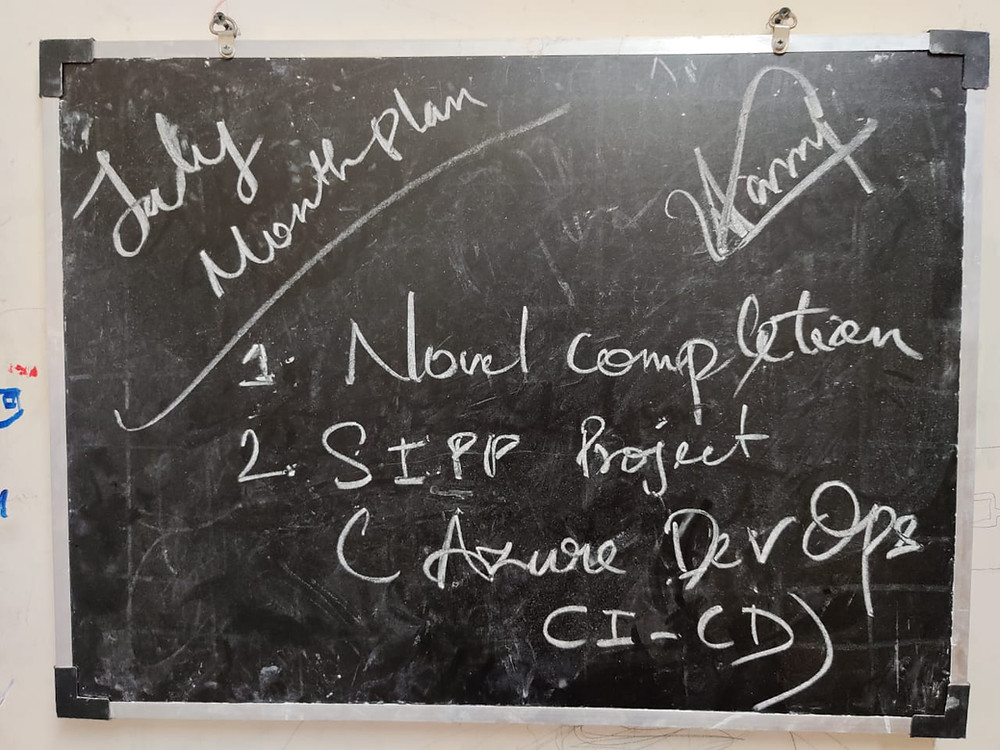 July
Month plan
1. Novel completion
2. SIPP Project
( Azure DevOps
CI-CD)